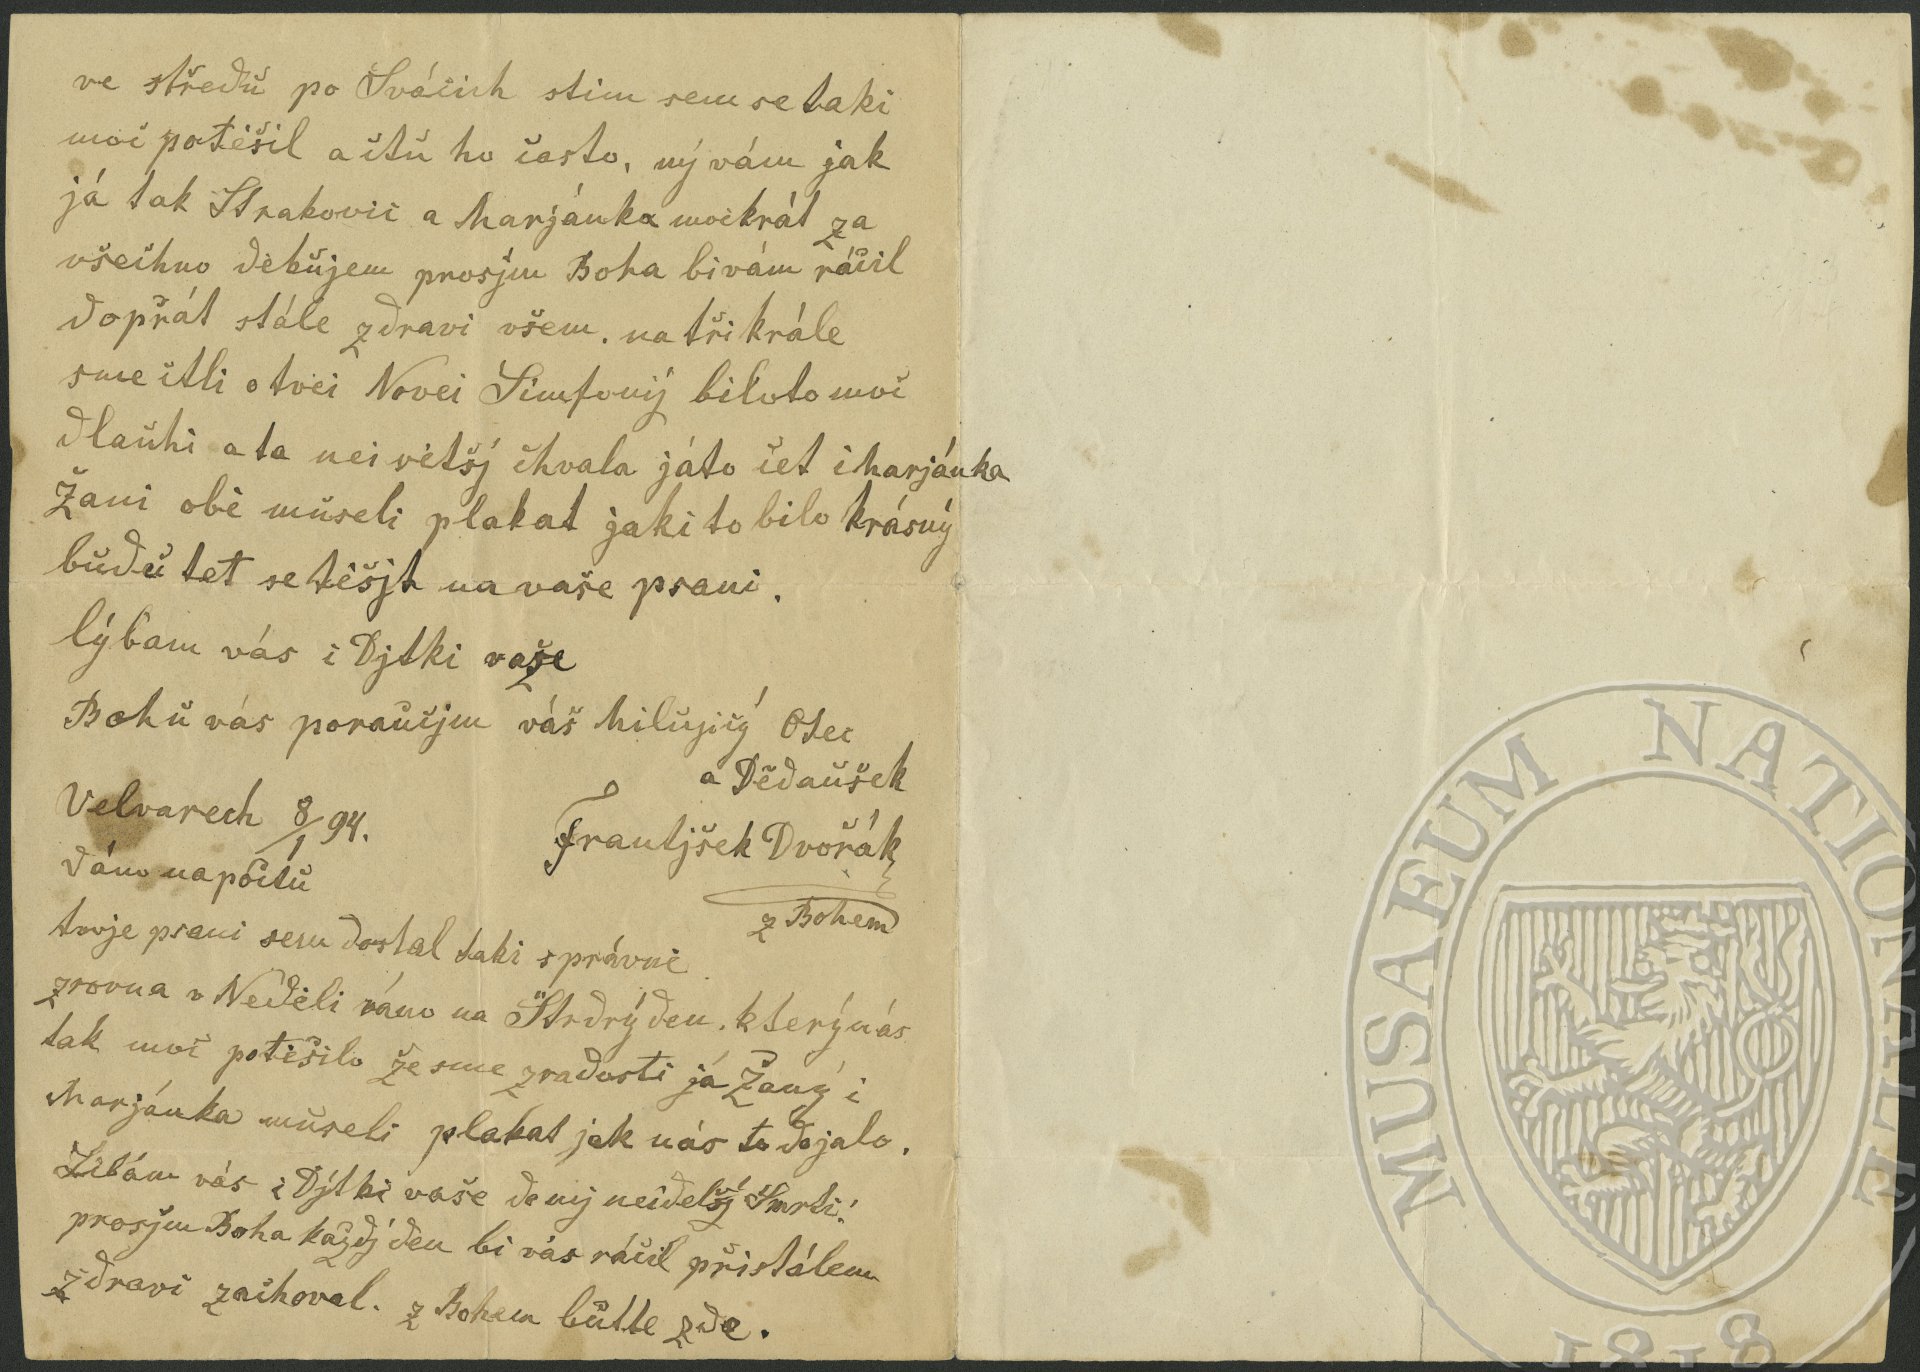 ve středů po Svácich stim sem se taki
moc potěšil a čtů ho často, ný vám jak
já tak Strakovic a Marjánka mockrát za
všechno děkůjem prosjm Boha bi vám ráčil
dopřát stále zdravi všem. na tři krále
sme čtli o tvei Novei Simfoniý bilo to moc
dlaůhi a ta nei většj chvala já to čet i Marjánka
Žani obě můseli plakat jaki to bilo krásný
bůdů teť se těšjt na vaše psani.
lýbam vás i Djtki vaše
Bohů vás poraůčjm váš Milůjicý Otec
a Dědaůšek
Velvarech 8/1 94.
Frantjšek Dvořák
dáno na počtů
z Bohem
tvoje psani sem dostal taki správně
zrovna v Neděli ráno na Štrdrý den. který nás
tak moc potěšilo že sme z radosti já Žaný i
Marjánka můseli plakat jak nás to dojalo.
Libám vás i Djtki vaše do nij neidelšj Smrti!
prosjm Boha každý den bi vás ráčil při stálem
zdravi zachoval. z Bohem bůtte zde.
MUSAEUM NATIONALE
1818